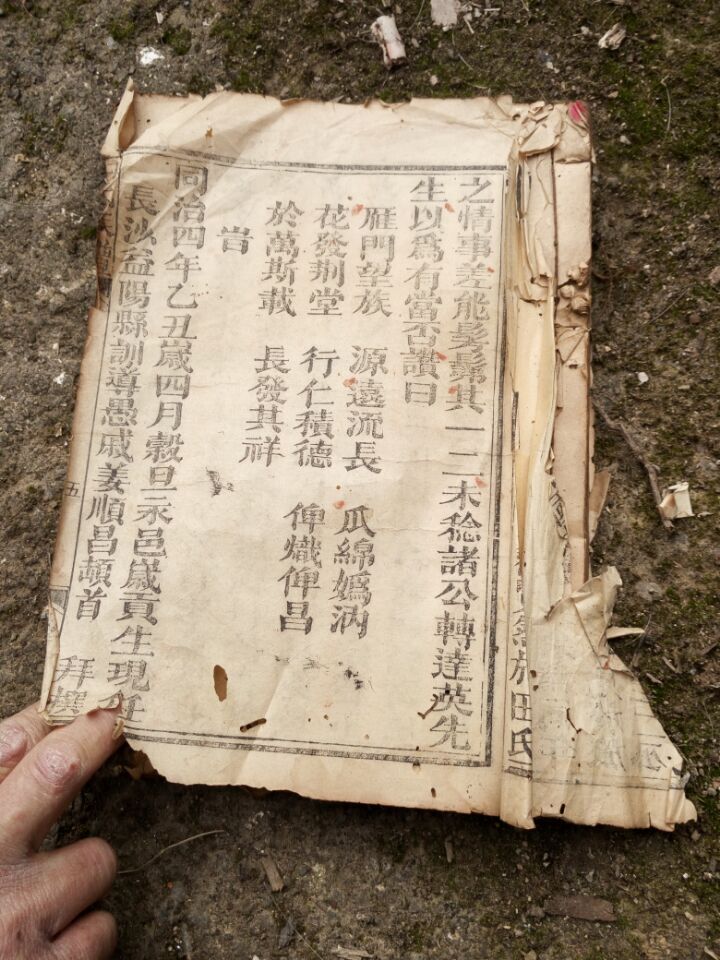 於田氏
之情事差能髣髴其一二未稔諸公轉達英先
生以爲有當否讚曰
雁門望族 源遠流長 瓜綿嬀汭
花發荆堂 行仁積德 俾熾俾昌
於萬斯載 長發其祥
旹
同治四年乙丑歲四月穀旦永邑歲貢生現任
長沙益陽縣訓導愚戚姜順昌頓首 拜撰
五